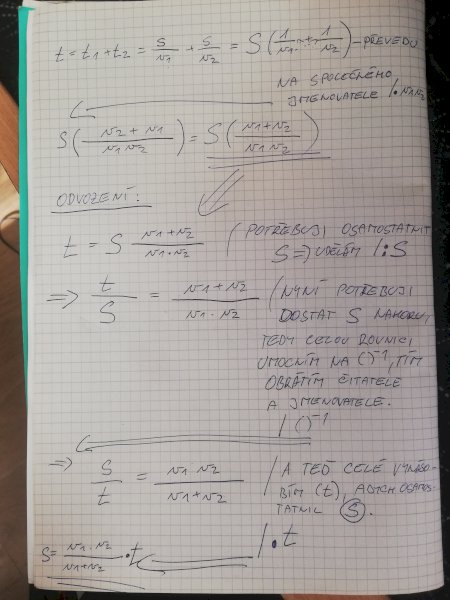 t = t1 + t2 = s/v1 + s/v2 = S(1/v1 + 1/v2) - PŘEVEDU
NA SPOLEČNÉHO
JMENOVATELE /· v1v2
S(v2 + v1/v1 v2) = S(v1+v2/v1 v2)
ODVOZENÍ:
t = S v1+v2/v1·v2 / POTŘEBUJI OSAMOSTATNIT
S => UDĚLÁM /:S
=> t/S = v1+v2/v1·v2 / NYNÍ POTŘEBUJI
DOSTAT S NAHORU,
TEDY CELOU ROVNICI
UMOCNÍM NA ()⁻¹, TÍM
OBRÁTÍM ČITATELE
A JMENOVATELE.
/ ()⁻¹
=> S/t = v1·v2/v1+v2 / A TEĎ CELÉ VYNÁSO-
BÍM (t), ABYCH OSAMOS-
TATNIL S.
S = v1·v2/v1+v2 · t /·t